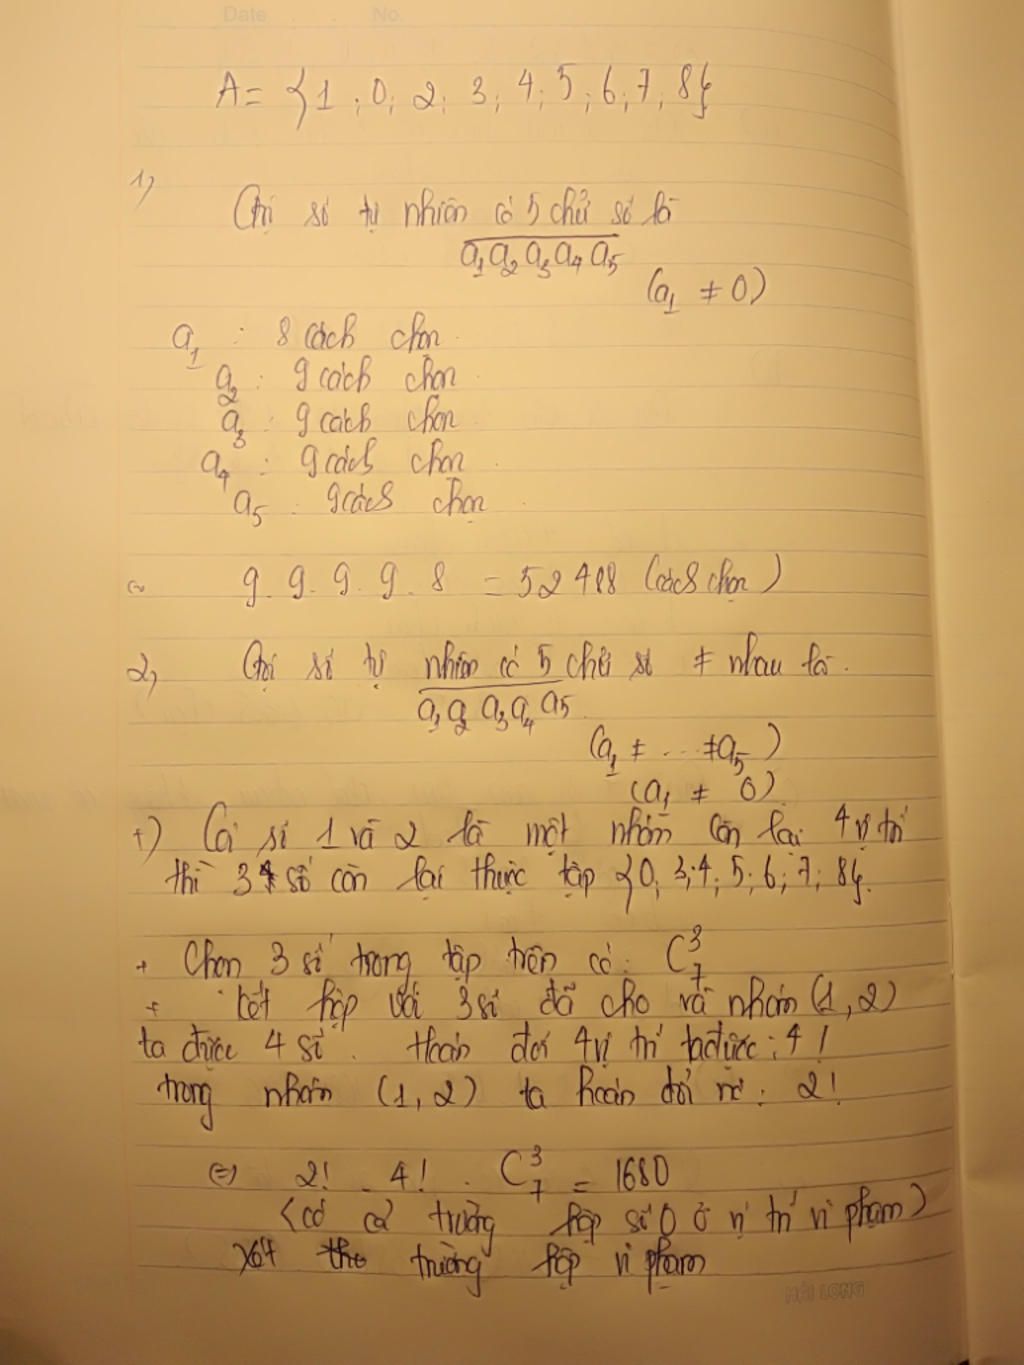 Date . . No.
A = {1 ; 0 ; 2 ; 3 ; 4 ; 5 ; 6 ; 7 ; 8}
1)
Gọi số tự nhiên có 5 chữ số là
a₁a₂a₃a₄a₅
(a₁ ≠ 0)
a₁ : 8 cách chọn
a₂ : 9 cách chọn
a₃ : 9 cách chọn
a₄ : 9 cách chọn
a₅ : 9 cách chọn
9 . 9 . 9 . 9 . 8 = 52488 (cách chọn)
2, Gọi số tự nhiên có 5 chữ số ≠ nhau là.
a₁a₂a₃a₄a₅
(a₁ ≠ ... ≠ a₅)
(a₁ ≠ 0)
+) Coi số 1 và 2 là một nhóm còn lại 4 vị trí
thì 3 số còn lại thuộc tập {0; 3; 4; 5; 6; 7; 8}.
+ Chọn 3 số trong tập trên có : C₇³
+ kết hợp với 3 số đã cho và nhóm (1, 2)
ta được 4 số . Hoán đổi 4 vị trí ta được : 4!
trong nhóm (1, 2) ta hoán đổi nó : 2!
(=) 2! . 4! . C₇³ = 1680
(có cả trường hợp số 0 ở vị trí vi phạm)
Xét trường hợp vi phạm
HẢI LONG